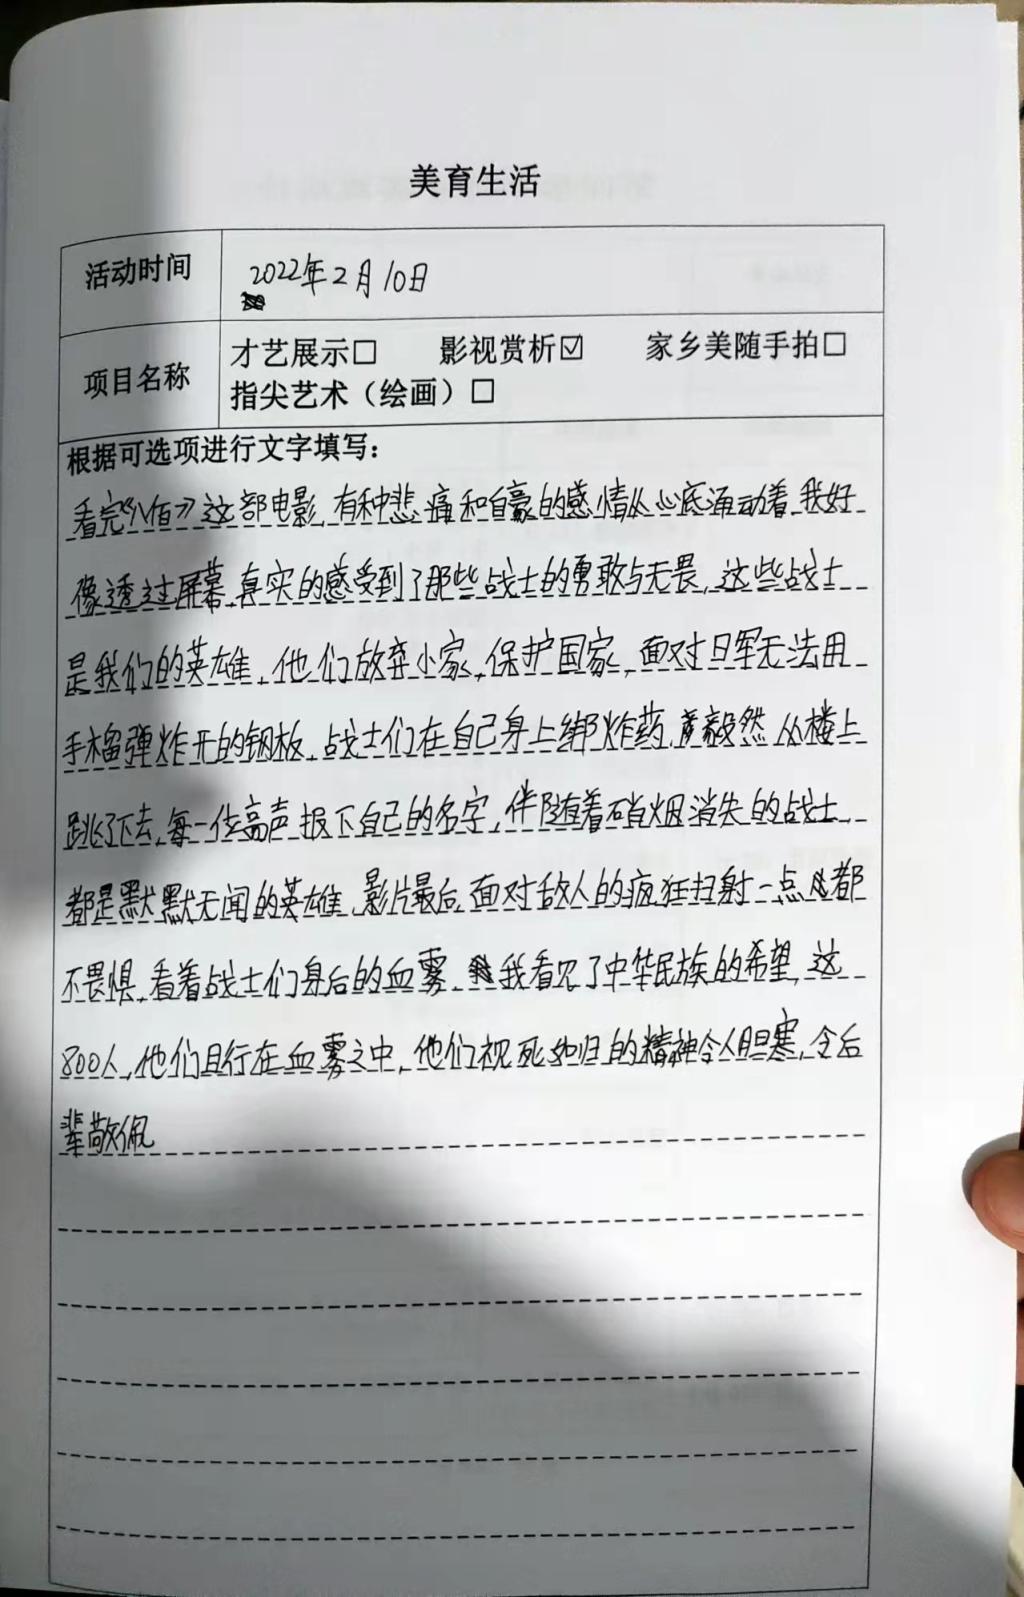 美育生活
活动时间
2022年2月10日
项目名称
才艺展示□ 影视赏析☑ 家乡美随手拍□
指尖艺术（绘画）□
根据可选项进行文字填写：
看完《八佰》这部电影,有种悲痛和自豪的感情从心底涌动着,我好
像透过屏幕,真实的感受到了那些战士的勇敢与无畏,这些战士
是我们的英雄,他们放弃小家,保护国家,面对日军无法用
手榴弹炸开的钢板,战士们在自己身上绑炸药,毅然从楼上
跳了下去,每一位高声报下自己的名字,伴随着硝烟消失的战士,
都是默默无闻的英雄,影片最后,面对敌人的疯狂扫射一点都
不畏惧,看着战士们身后的血雾,我看见了中华民族的希望,这
800人,他们且行在血雾之中,他们视死如归的精神令人胆寒,令后
辈敬佩